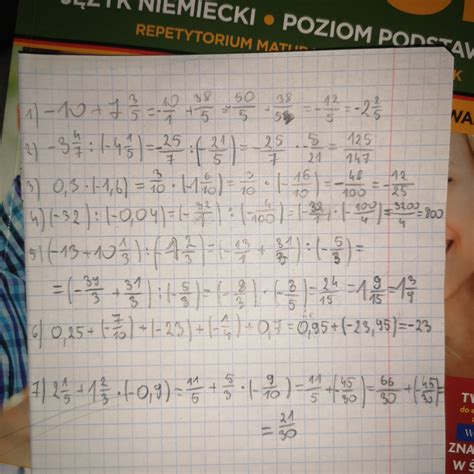 JĘZYK NIEMIECKI • POZIOM PODSTAW
REPETYTORIUM MATUR
1) -10 + 7 3/5 = -10/1 + 38/5 = -50/5 + 38/5 = -12/5 = -2 2/5
2) -3 4/7 : (-4 1/5) = -25/7 : (-21/5) = -25/7 · -5/21 = 125/147
3) 0,3 · (-1,6) = 3/10 · (-1 6/10) = 3/10 · (-16/10) = -48/100 = -12/25
4) (-32) : (-0,04) = (-32/1) : (-4/100) = (-32/1) · (-100/4) = 3200/4 = 800
5) (-13 + 10 1/3) : (-1 2/3) = (-13/1 + 31/3) : (-5/3) =
= (-39/3 + 31/3) : (-5/3) = (-8/3) · (-3/5) = 24/15 = 1 9/15 = 1 3/4
6) 0,25 + (-7/10) + (-23) + (-1/4) + 0,7 = 0,95 + (-23,95) = -23
7) 2 1/5 + 1 2/3 · (-0,9) = 11/5 + 5/3 · (-9/10) = 11/5 + (45/30) = 66/30 + (45/30) =
= 21/30
TW
ZNA
W Ś